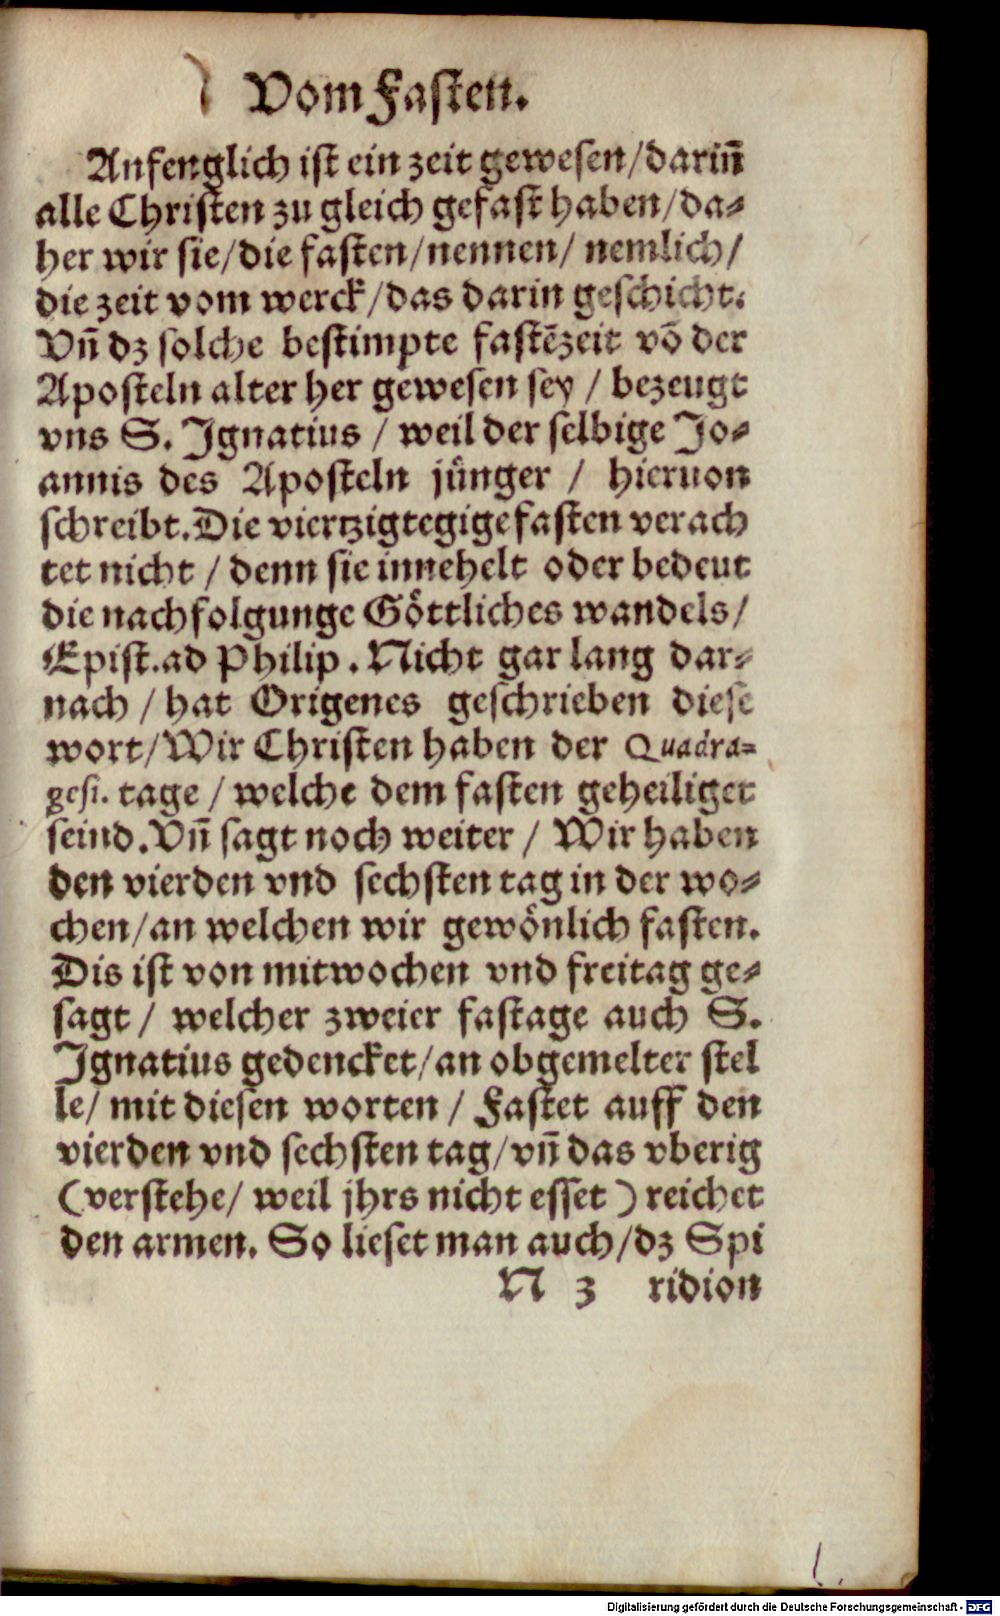 Vom Fasten.
Anfenglich ist ein zeit gewesen/darin̄
alle Christen zu gleich gefast haben/da⸗
her wir sie/die fasten/nennen/ nemlich/
die zeit vom werck/das darin geschicht.
Vn̄ dz solche bestimpte fastēzeit vō der
Aposteln alter her gewesen sey / bezeugt
vns S. Ignatius / weil der selbige Jo⸗
annis des Aposteln jünger / hieruon
schreibt.Die viertzigtegige fasten verach
tet nicht / denn sie innehelt oder bedeut
die nachfolgunge Göttliches wandels/
Epist.ad Philip. Nicht gar lang dar⸗
nach / hat Origenes geschrieben diese
wort/Wir Christen haben der Quadra⸗
gesi. tage / welche dem fasten geheiliget
seind.Vn̄ sagt noch weiter / Wir haben
den vierden vnd sechsten tag in der wo⸗
chen/an welchen wir gewönlich fasten.
Dis ist von mitwochen vnd freitag ge⸗
sagt / welcher zweier fastage auch S.
Ignatius gedencket/an obgemelter stel
le/ mit diesen worten / Fastet auff den
vierden vnd sechsten tag/vn̄ das vberig
(verstehe/ weil jhrs nicht esset) reichet
den armen. So lieset man auch/dz Spi
N 3 ridion
Digitalisierung gefördert durch die Deutsche Forschungsgemeinschaft - DFG